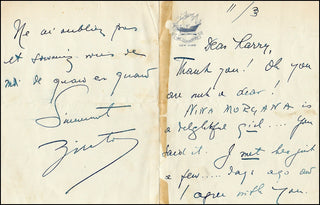 11/3
Dear Larry,
Thank you! Oh you
are such a dear!
NINA MORGANA is
a delightful girl.... you
said it. I met her just
a few.... days ago and
I agree with you.
Ne m'oubliez pas
et souvenez vous de
moi de quand en quand